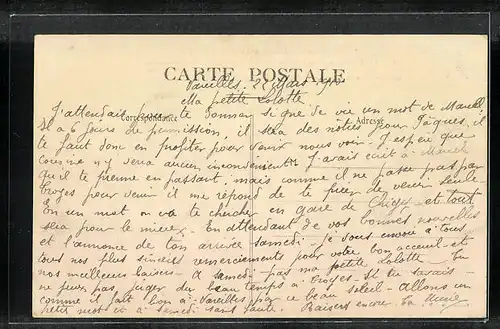 CARTE POSTALE
Correspondance
Adresse
Vareilles, 22 Mars 19
Ma petite Lolotte
J'attendais pour te donner signe de vie un mot de Marcel,
Il a 6 jours de permission, il sera des nôtres pour Pâques, il
te faut donc en profiter pour venir nous voir. J'espère que
n'y verra aucun inconvénient. J'avais écrit à Marcel
qu'il te prenne en passant, mais comme il ne passe pas par
Troyes pour venir il me répond de te prier de venir seule
En un mot on va te chercher en gare de et tout
sera pour le mieux. En attendant de vos bonnes nouvelles
et l'annonce de ton arrivée samedi je vous envoie à tous
tous nos plus sincères remerciements pour votre bon acceuil et
nos meilleurs baisers. A samedi pas ma petite Lolotte. Tu
ne peux pas juger du beau temps à Troyes. Si tu savais
comme il fait bon à Vareilles par ce beau soleil. Allons un
petit mot et à samedi sans faute. Baisers encore. Ta